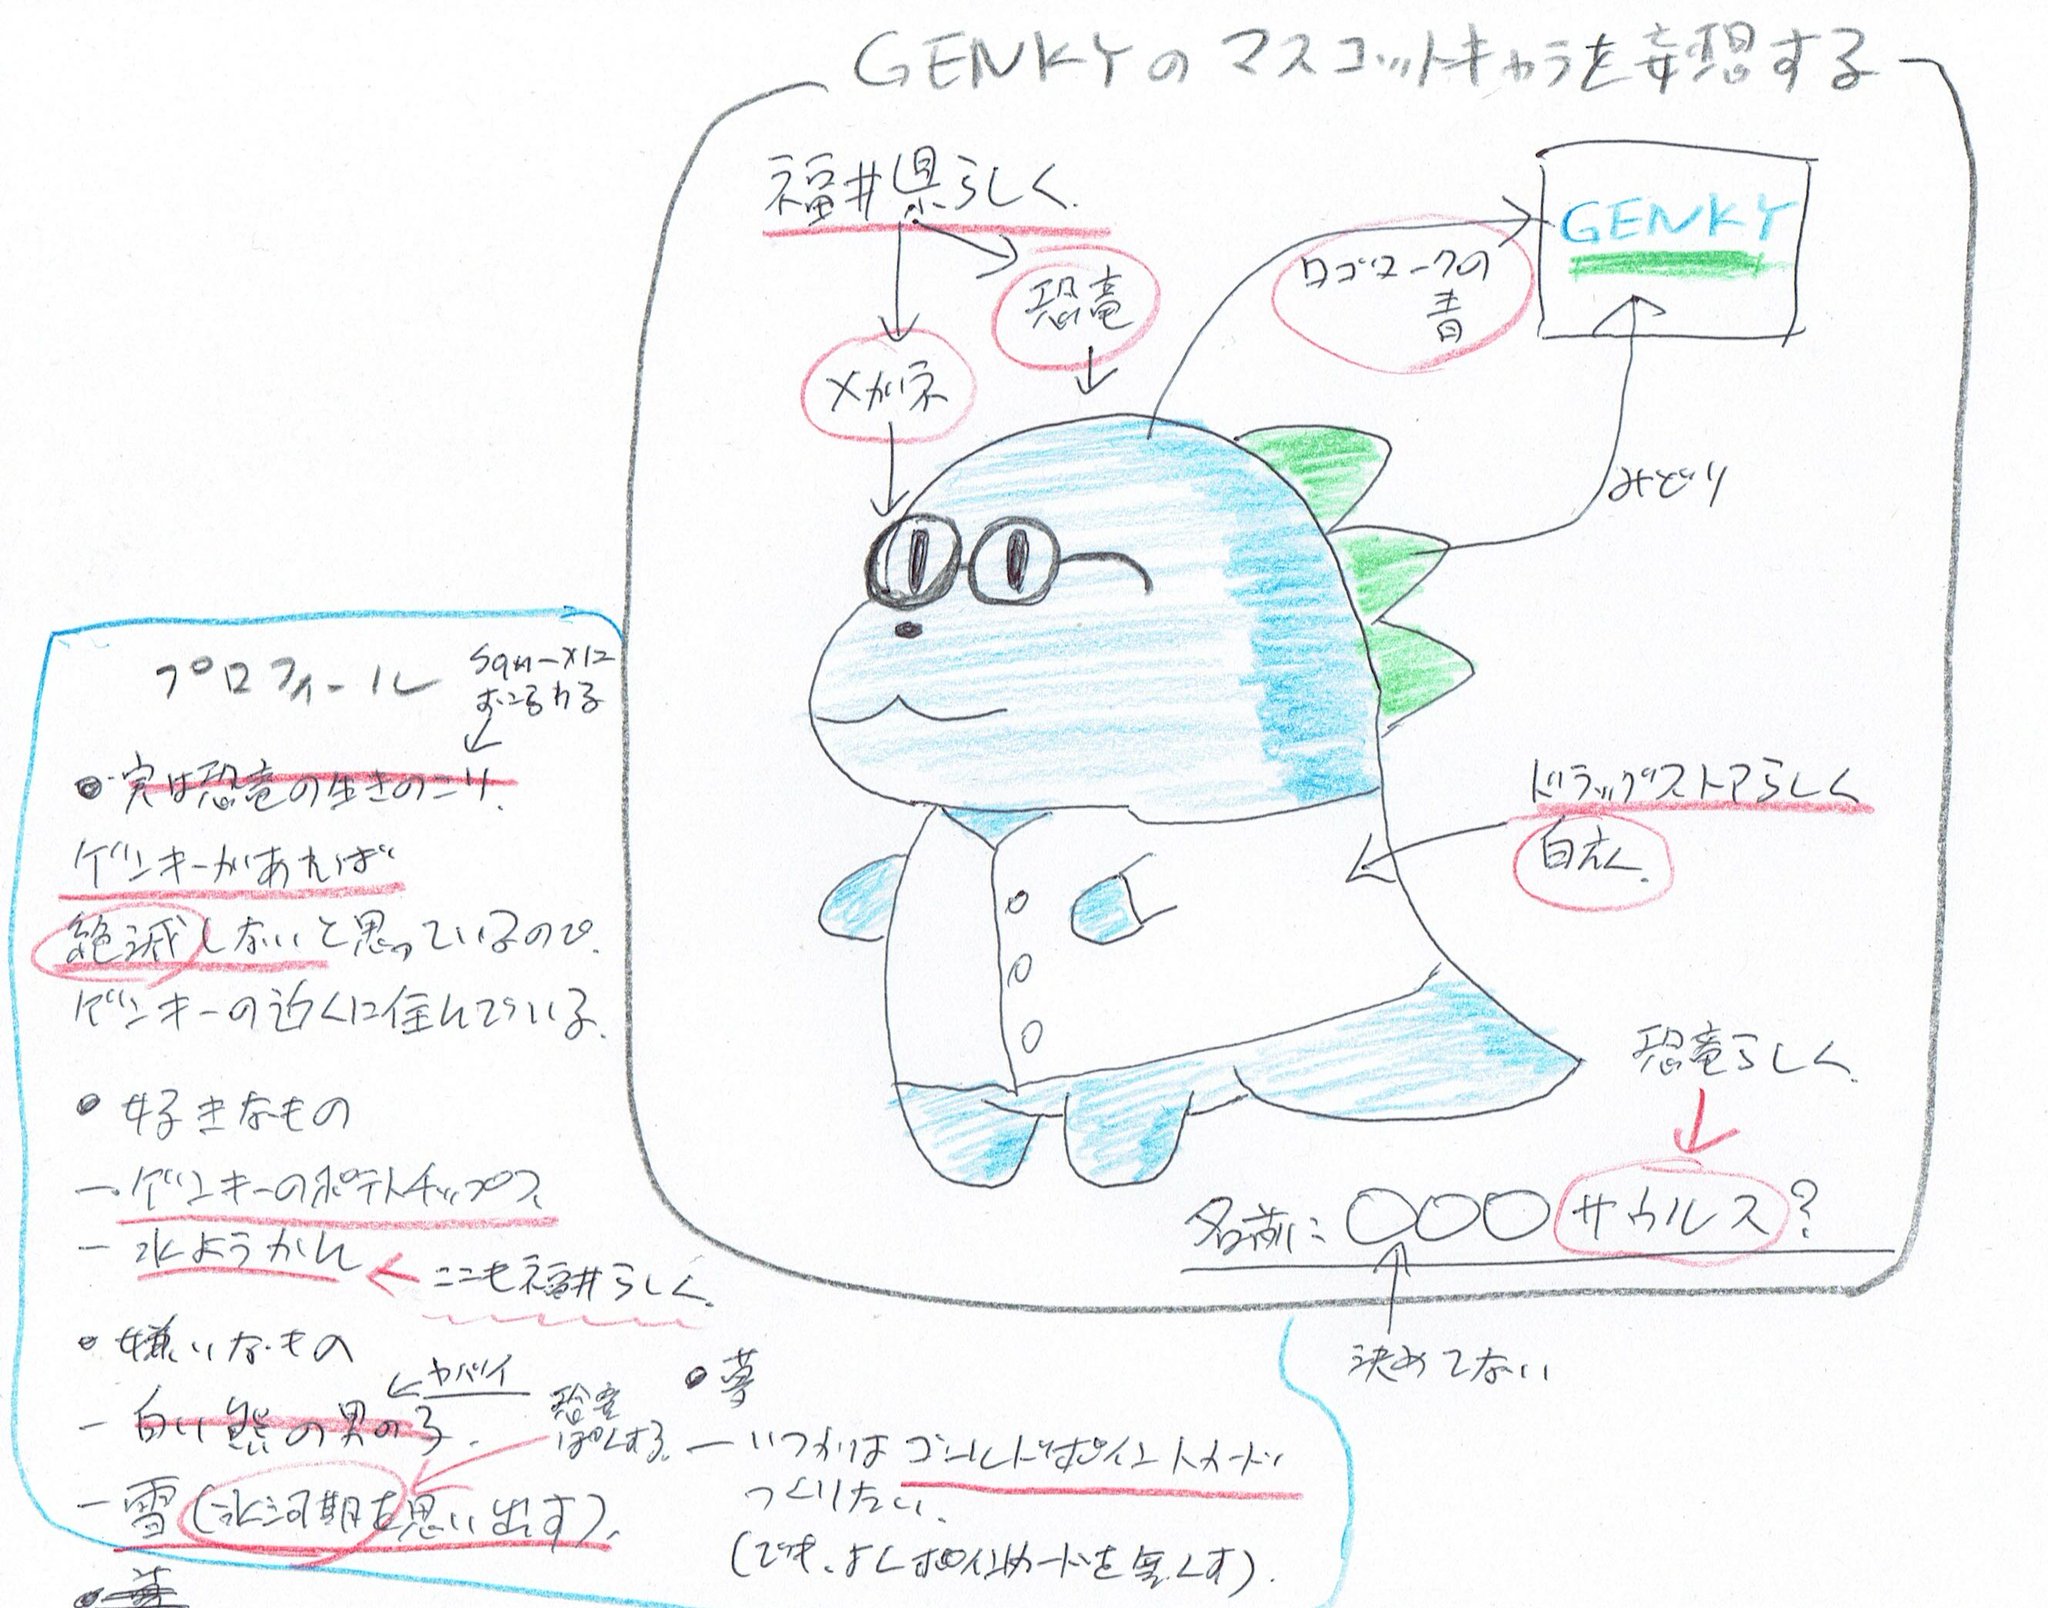 GENKYのマスコットキャラを妄想する
福井県らしく
恐竜
メガネ
ロゴマークの
青
GENKY
みどり
ドラッグストアらしく
白えく
恐竜らしく
名前:〇〇〇サウルス?
決めてない
プロフィール
おこられる
●実は恐竜の生きのこり
ゲンキーがあれば
絶滅しないと思っているので
ゲンキーの近くに住んでいる
●好きなもの
ー ゲンキーのポテトチップス
ー 水ようかん
ここも福井らしく
●嫌いなもの
ヤバイ
ー 白い熊の男の子
恐竜
ぽくする
ー 雪(氷河期を思い出す)
●夢
ー いつかはゴールドポイントカード
つくりたい
(でも、よくポイントカードを無くす)